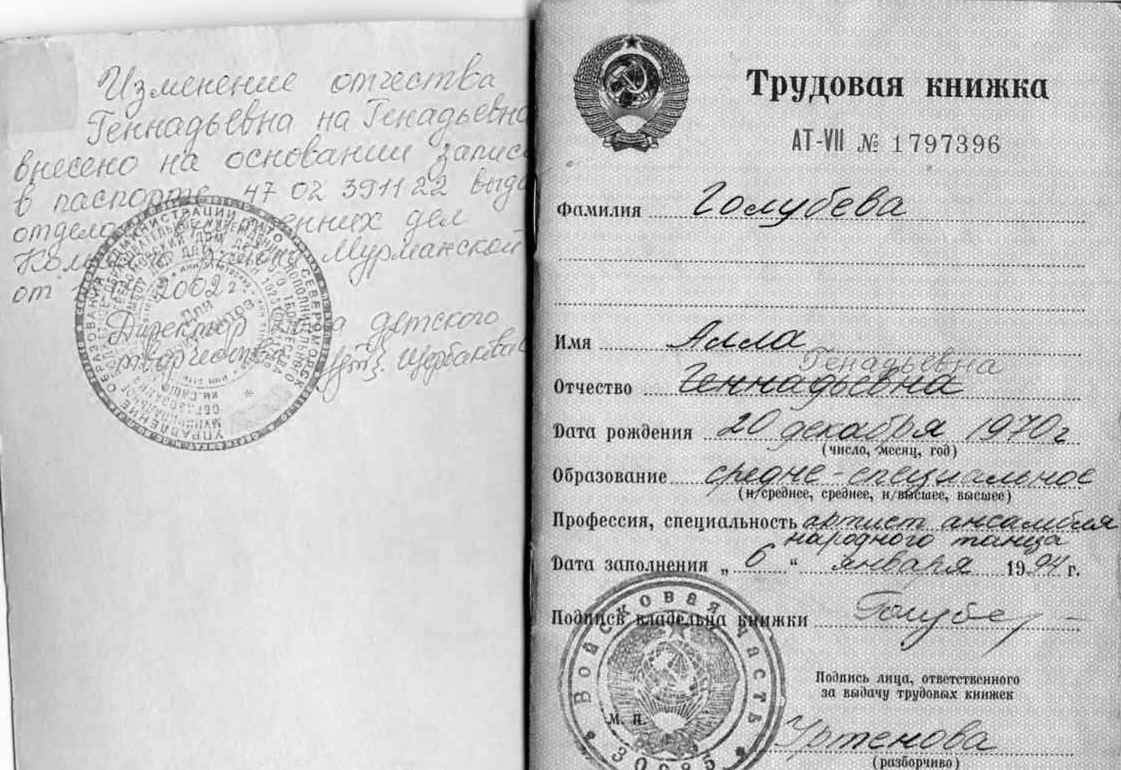 Изменение отчества
Геннадьевна на Генадьевна
внесено на основании запис
в паспорте 47 02 391122 выд
отдело нних дел
Мурманской
от 2002г
Директор детского
творчества Щербакова
Трудовая книжка
АТ-VII № 1797396
Фамилия Голубева
Имя Алла
Генадьевна
Отчество Геннадьевна
Дата рождения 20 декабря 1970г
(число, месяц, год)
Образование средне-специальное
(н/среднее, среднее, н/высшее, высшее)
Профессия, специальность артист ансамбля
народного танца
Дата заполнения „ 6 “ января 1994 г.
Подпись владельца книжки Голубе
Войсковая часть
Подпись лица, ответственного
за выдачу трудовых книжек
М. П.
Уртенова
(разборчиво)